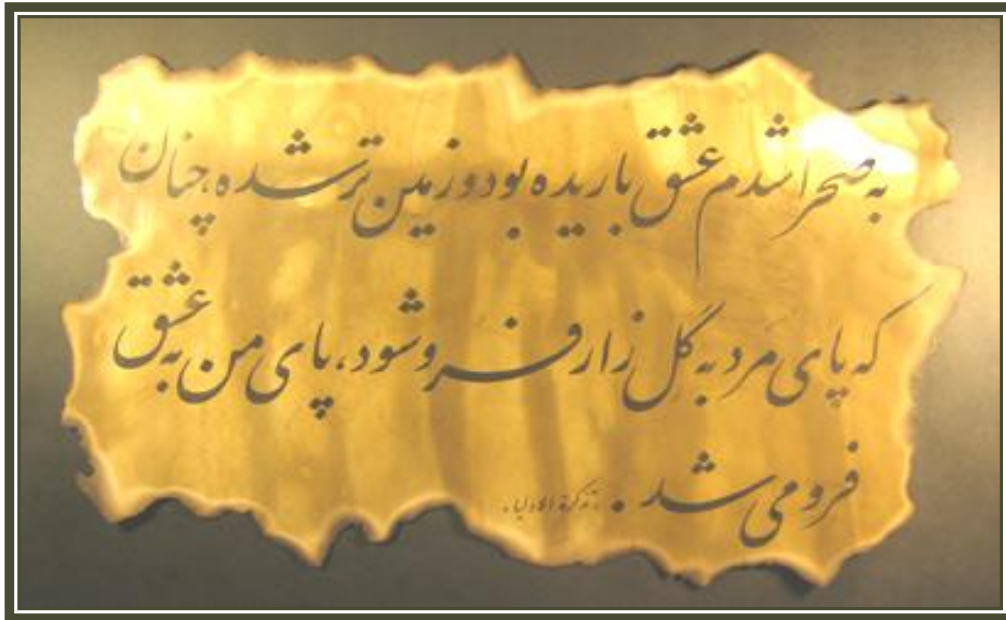 به صحرا شدم عشق باریده بود و زمین تر شده، چنان
که پای مرد به گل زار فرو شود، پای من به عشق
فرو می شد. تذکرة الاولیا.